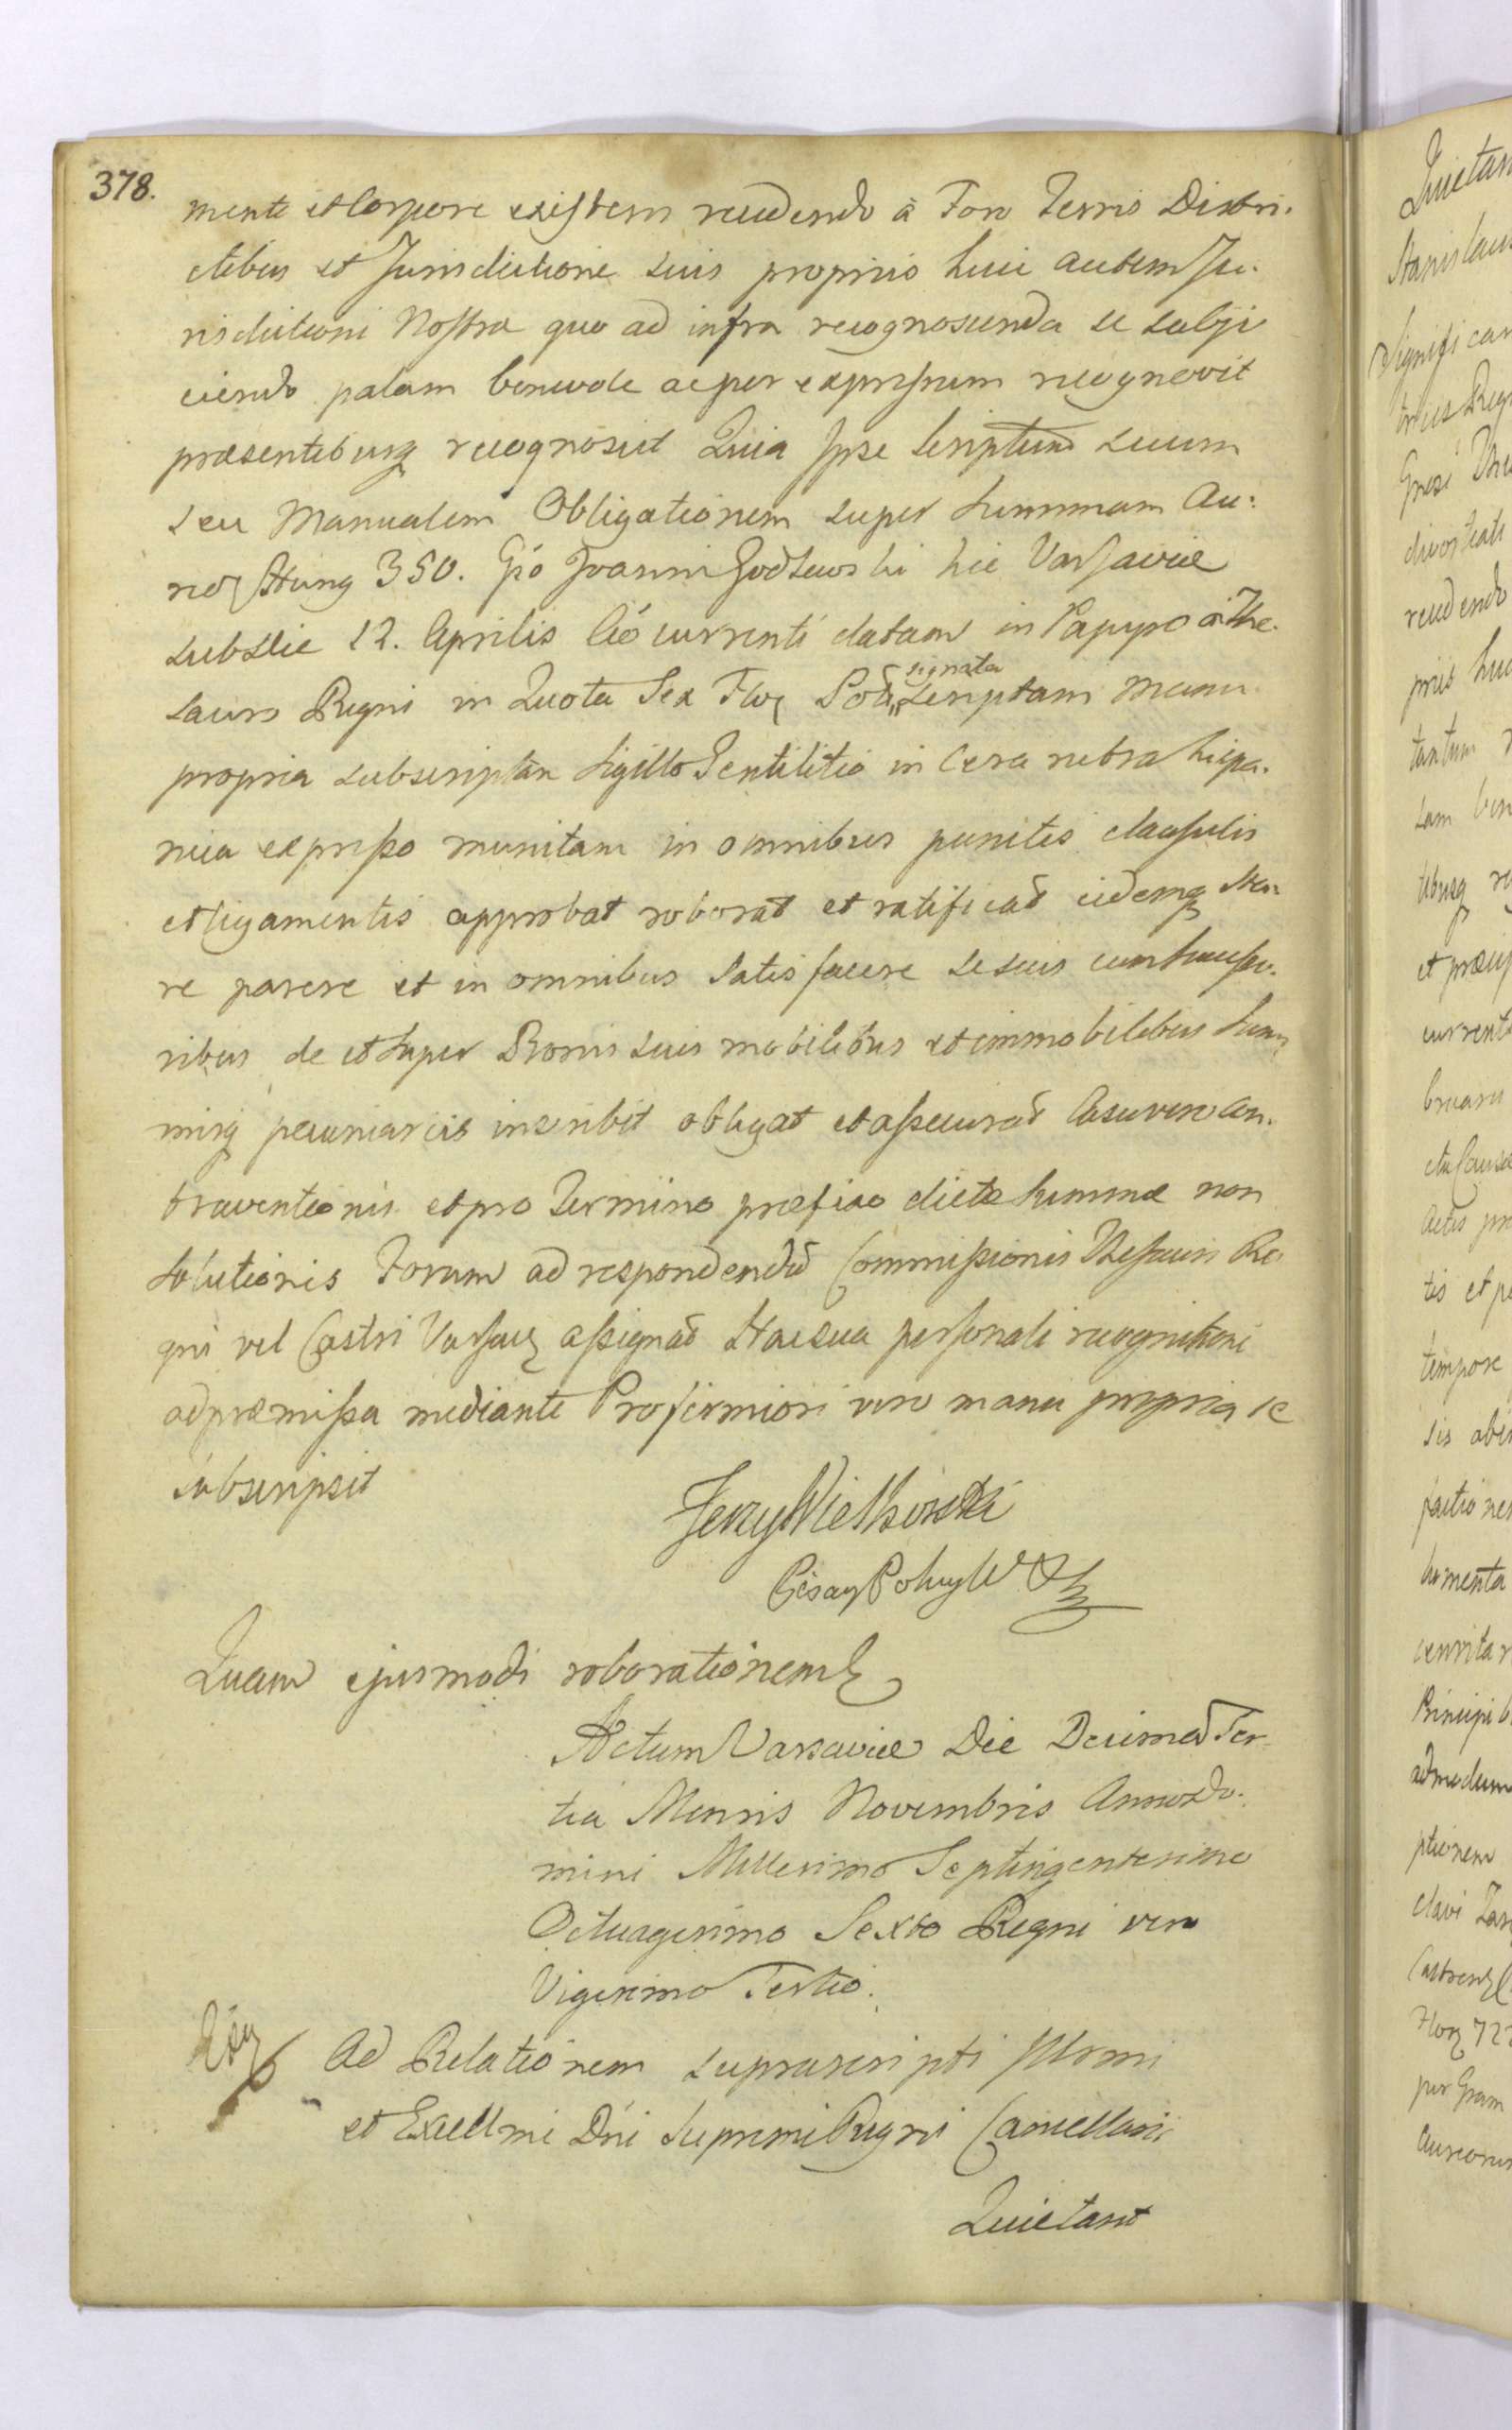 378.
mente et Corpore existens recedendo à Foro Terris Distri-
ctibus et Jurisdictione suis propriis huic autem Ju-
risdictioni Nostræ quo ad infra recognoscenda se subji
ciendo palam benevole ac per expressum recognovit
præsentibusq recognoscit Quia Ipse Scriptum suum
seu Manualem Obligationem super Summam Au-
reor Hung 350. Gso Joanni Godlewski hic Varsaviæ
sub die 12. Aprilis Ao currenti datam in Papyro à The-
sauro Regni in Quota Sex Flor Pol signata Scriptam manu
propria subscriptam Sigillo Gentilitio in Cera rubra hispa-
nica expresso munitam in omnibus punctis clausulis
et ligamentis approbat roborat et ratificat eidemq sta-
re parere et in omnibus satisfacere se suis cum Successo-
ribus de et super Bonis suis mobilibus et immobilibus Sum-
misq pecuniariis inscribit obligat et assecurat Casu vero Con-
traventionis et pro Termino præfixo dictæ Summæ non
Solutionis Forum ad respondendum Commissionis Thesauri Re-
gni vel Castri Varsav assignat Hac sua personali recognitioni
ad præmissa mediante Pro firmiori vero manu propria se
subscripsit
Jerzy Wielhorski
Pisarz Polny W
Quam ejusmodi roborationem
Actum Varsaviæ Die Decima Ter-
tia Mensis Novembris Anno Do-
mini Millesimo Septingentesimo
Octuagesimo Sexto Regni vero
Vigesimo Tertio.
Ad Relationem suprascripti Illsmi
et Excellmi Dni Supremi Regni Cancellarii
Quietant
Quietan
Stanislau
Significan
Regn
recedendo
priis hui
tantum
lam ben
tibusq re
et præcip
current
bruarii
Actis
tis et pe
tempore
sis abi
menta
Principib
admodum
ptionem
clavi
Castrens
Flor 722
per Gram
Aureorum